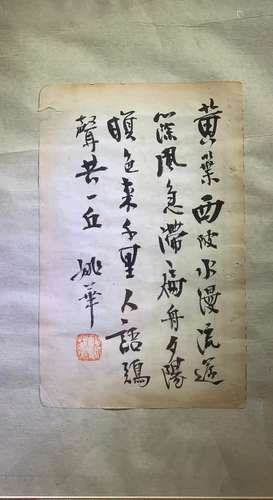 黃葉西陂水漫流籧
篨風急滯扁舟夕陽
暝色來千里人語鷄
聲共一丘 姚華